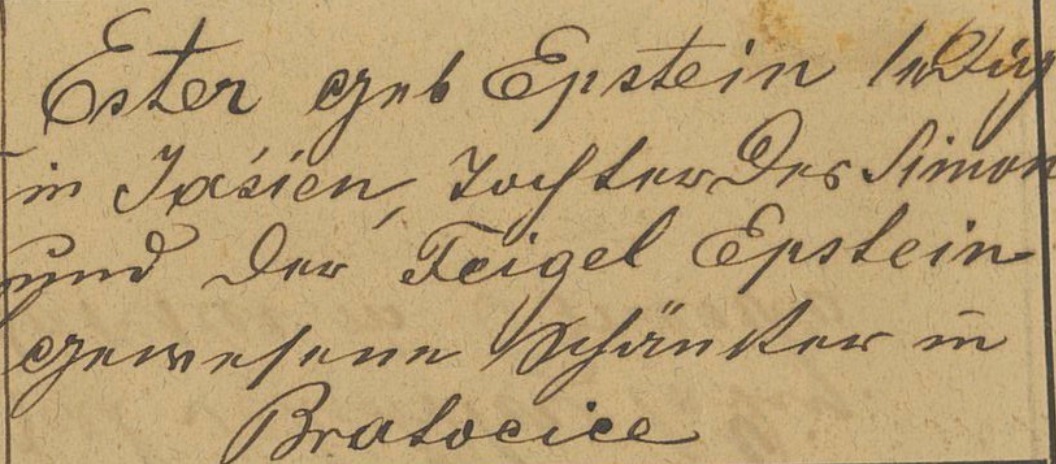 Ester geb Epstein ledig
in Jasień, Tochter des Simon
und der Feigel Epstein
gewesene Schänker in
Bratocice